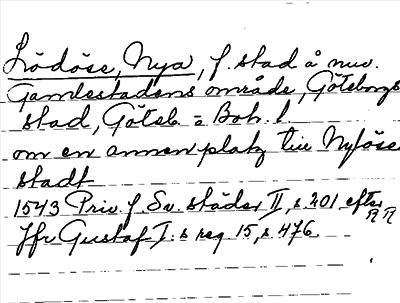 Lödöse, Nya, f. stad å nuv.
Gamlestadens område, Göteborgs
stad, Göteb. = Boh. l
om en annen platz till Nyløse
stadt
1543 Priv. f. Sv. städer II, s. 201 efter
RR
Jfr Gustaf I:s reg. 15, s. 476.